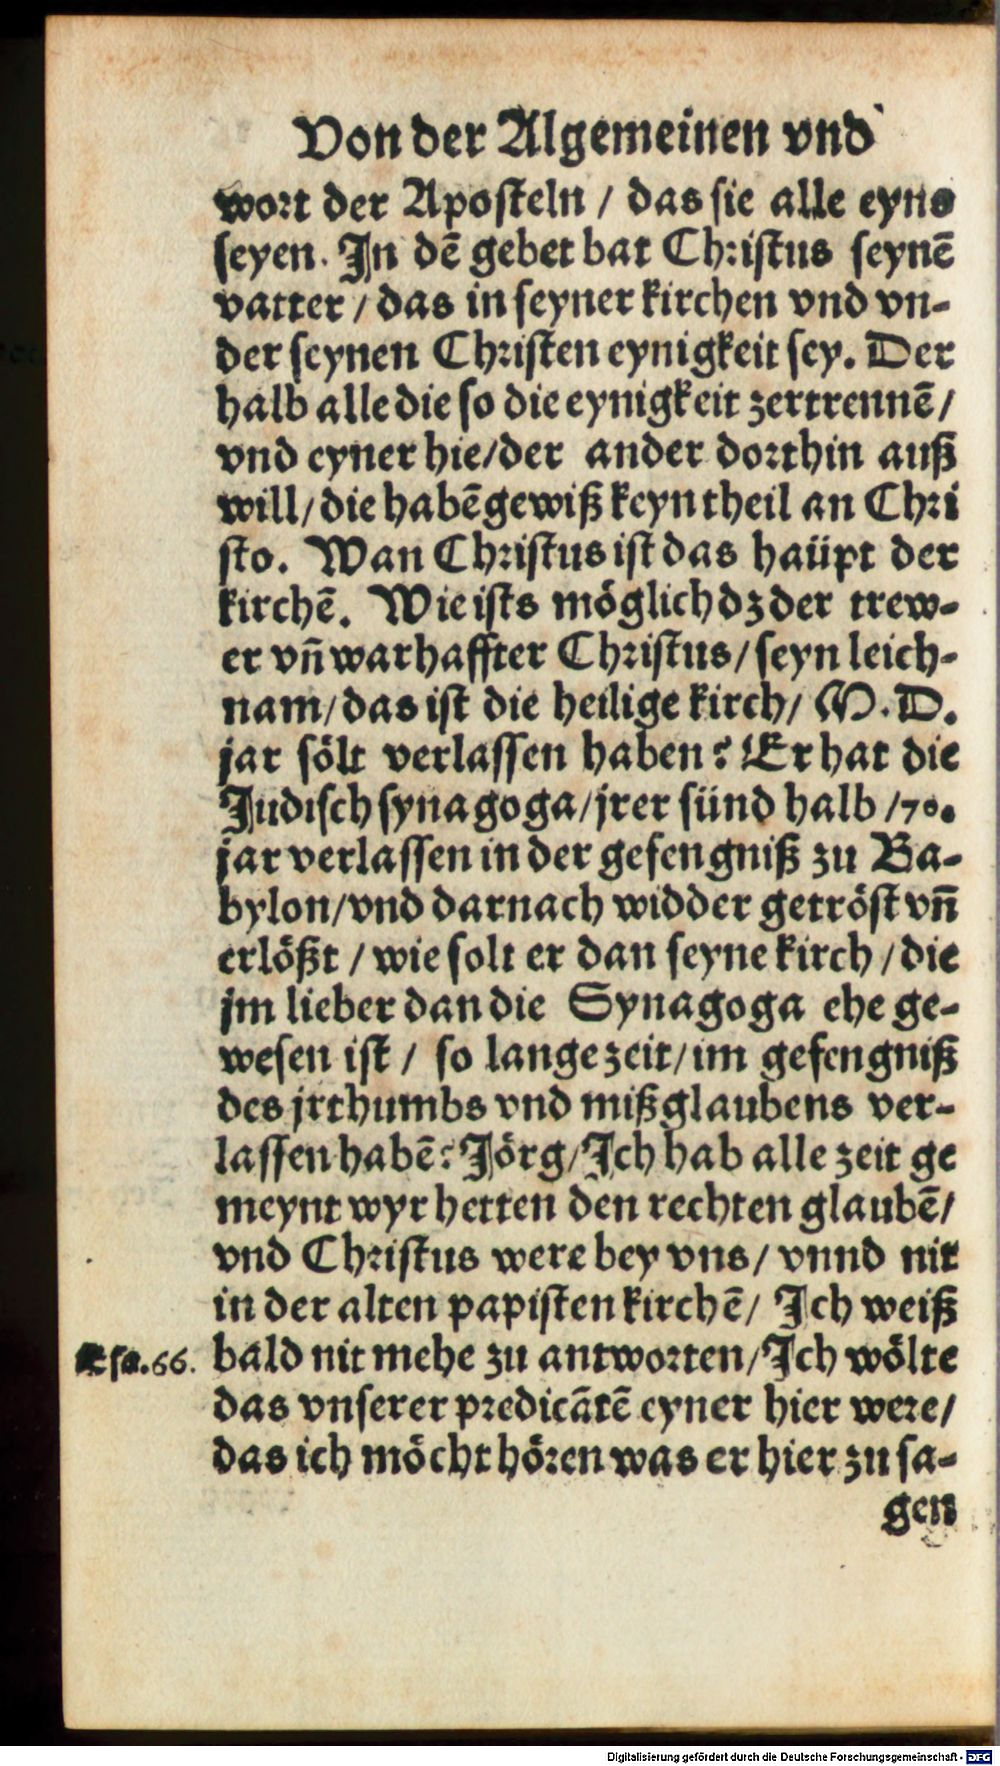 Von der Algemeinen vnd
wort der Aposteln / das sie alle eyns
seyen. In dē gebet bat Christus seynē
vatter / das in seyner kirchen vnd vn-
der seynen Christen eynigkeit sey. Der
halb alle die so die eynigkeit zertrennē /
vnd eyner hie/der ander dorthin auß
will/die habē gewiß keyn theil an Chri
sto. Wan Christus ist das haüpt der
kirchē. Wie ists möglich dz der trew-
er vñ warhaffter Christus/seyn leich-
nam/das ist die heilige kirch/ M.D.
jar sölt verlassen haben? Er hat die
Judisch synagoga/jrer sünd halb /70.
jar verlassen in der gefengniß zu Ba-
bylon/vnd darnach widder getröst vñ
erlößt / wie solt er dan seyne kirch / die
jm lieber dan die Synagoga ehe ge-
wesen ist / so lange zeit/im gefengniß
des jrthumbs vnd mißglaubens ver-
lassen habē? Jörg/Ich hab alle zeit ge
meynt wyr hetten den rechten glaubē/
vnd Christus were bey vns/ vnnd nit
in der alten papisten kirchē/ Ich weiß
Esa.66. bald nit mehe zu antworten/Ich wölte
das vnserer predicātē eyner hier were/
das ich möcht hören was er hier zu sa-
gen
Digitalisierung gefördert durch die Deutsche Forschungsgemeinschaft - DFG